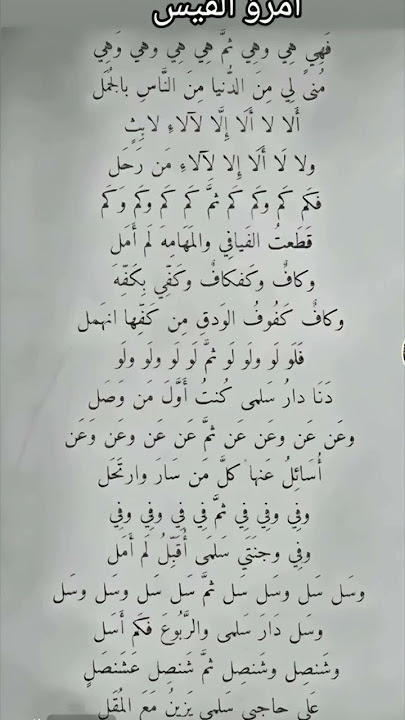 امرؤ القيس
فَهِي هِي وهِي ثمَّ هِي هِي وهي وَهِي
مُنىً لِي مِنَ الدُّنيا مِنَ النَّاسِ بالجُمَل
أَلا لا أَلَا إِلَّا لآلاءِ لابِثٍ
ولا لَا أَلَا إِلا لِآلاءِ مَن رَحَل
فكَم كَم وكَم كَم ثمَّ كَم كَم وكَم وَكَم
قَطَعتُ الفَيافِي والمَهَامِهَ لَم أَمَل
وكافٌ وكَفكافٌ وكَفِّي بِكَفِّهِ
وكافٌ كَفُوفُ الوَدقِ مِن كَفِّها انهَمل
فَلَو لَو ولَو لَو ثمَّ لَو لَو ولَو ولَو
دَنَا دارُ سَلمى كُنتُ أَوَّلَ مَن وَصَل
وعَن عَن وعَن عَن ثمَّ عَن عَن وعَن وَعَن
أُسَائِلُ عَنها كلَّ مَن سَارَ وارتَحَل
وفِي وفِي فِي ثمَّ فِي فِي وفِي وفِي
وفِي وجنَتَي سَلمَى أُقَبِّلُ لَم أَمَل
وسَل سَل وسَل سَل ثمَّ سَل سَل وسَل وسَل
وسَل دَارَ سَلمى والرَّبُوعَ فكَم أَسَل
وشَنصِل وشَنصِل ثمَّ شَنصِل عَشَنصَلٍ
عَلى حاجِبي سَلمى يَزِينُ مَعَ المُقَل